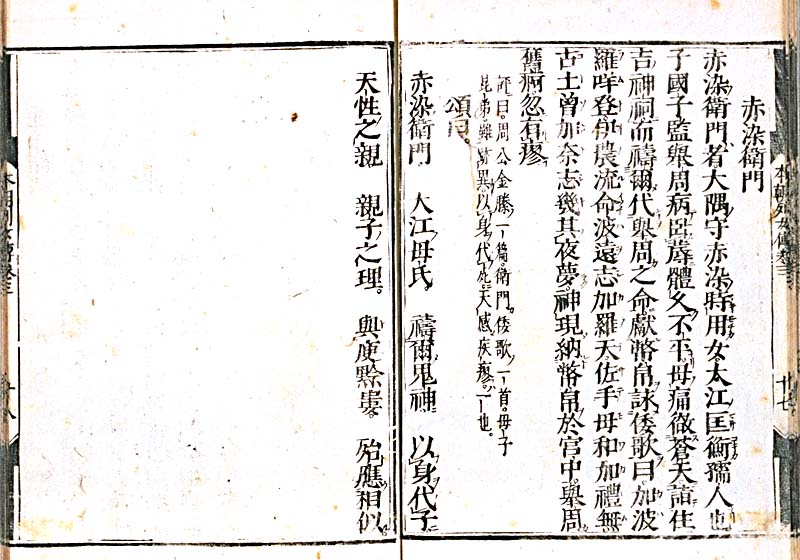 赤染衛門
赤染衛門者大隅守赤染時用女大江匡衡孺人也
子國子監擧周病臥蓐體久不平母痛徹蒼天詣住
吉神祠而禱爾代擧周之命獻幣帛詠倭歌曰加波
羅牟登伊農流命波遠志加羅天佐手母和加禮無
古土曾加奈志幾其夜夢神現納幣帛於官中擧周
舊痾忽有瘳
評曰周公金縢一篇衛門倭歌一首母子
昆弟雖跡異以身代死天感疾瘳一也
頌曰
赤染衛門 大江母氏 禱爾鬼神 以身代子
天性之親 親子之理 與庾黔婁 殆應相似
本朝列女傳卷三
廿七
本朝列女傳卷三
廿八